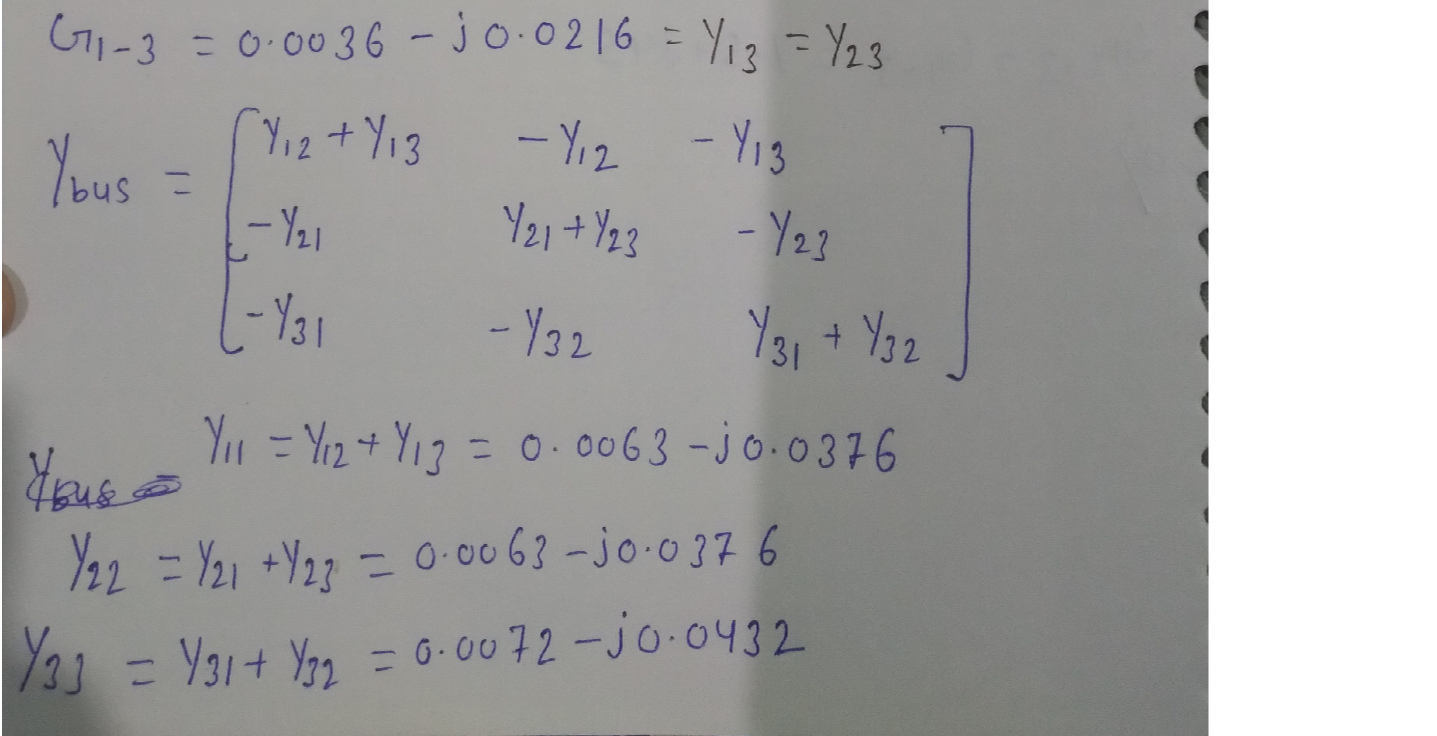 G1-3 = 0.0036 - j0.0216 = Y13 = Y23
Ybus = [ Y12 + Y13 - Y12 - Y13 ]
- Y21 Y21 + Y23 - Y23
- Y31 - Y32 Y31 + Y32
Y11 = Y12 + Y13 = 0.0063 - j0.0376
Ybus =
Y22 = Y21 + Y23 = 0.0063 - j0.0376
Y33 = Y31 + Y32 = 0.0072 - j0.0432